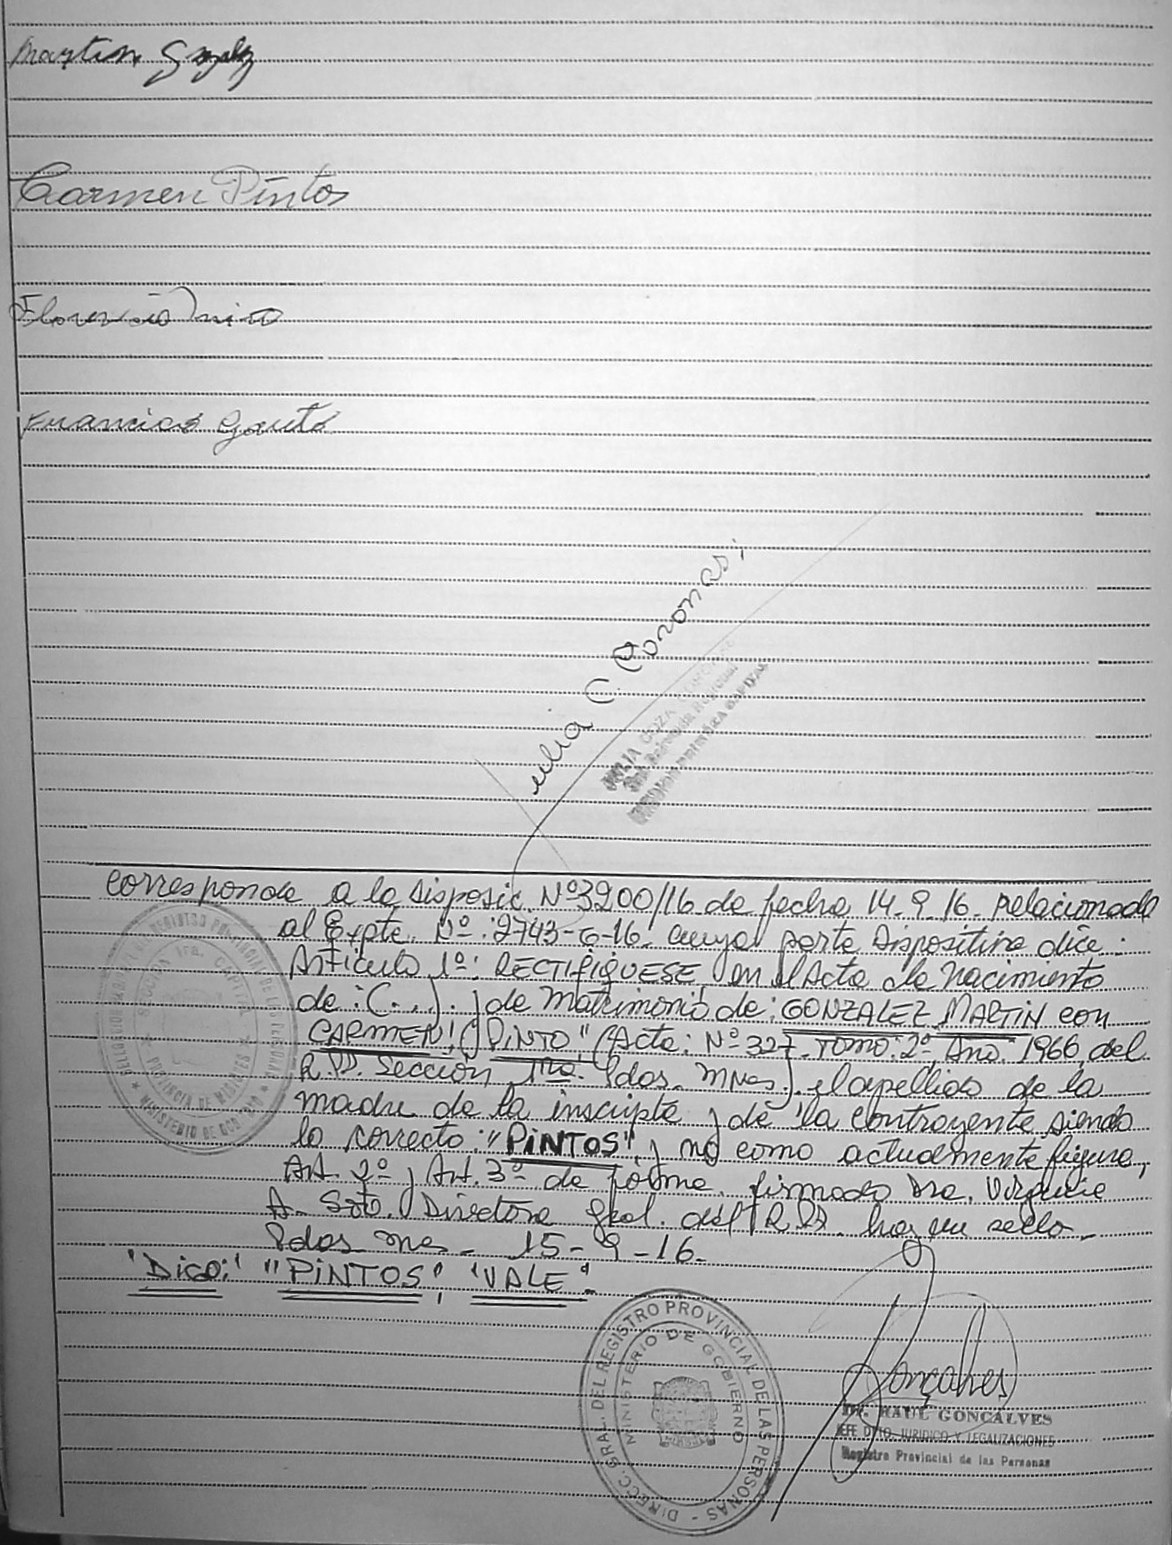 Martin
Carmen Pintos
Florencio
Francisco Gauto
Julia C. Coronas;
JULIA
corresponde a la disposic. Nº3200/16 de fecha 14-9-16. relacionado
al Expte. Nº: 2743-G-16. cuya parte dispositiva dice:
Artículo 1º: RECTIFIQUESE, en el Acta de nacimiento
de: (...). y de matrimonio de: GONZALEZ MARTIN con
CARMEN "PINTO" (Acta: Nº 327. Tomo: 2º- Año. 1966, del
R.P.P. Sección 1ra. Pdas. Mnes.) el apellido de la
madre de la inscripta y de la contrayente siendo
lo correcto: "PINTOS", y no como actualmente figura,
Art. 2º y Art. 3º de forma. firmado Dra. Virginia
A. Soto. Directora Gral. del R.P.P. hay un sello-
Pdas mnes - 15-9-16.
"Digo:" "PINTOS", "VALE"-
SECCION 1ra. CAPITAL
PROVINCIA DE MISIONES
MINISTERIO DE GOBIERNO
DIRECC. GRAL. DEL REGISTRO PROVINCIAL DE LAS PERSONAS -
MINISTERIO DE GOBIERNO
Goncalves
Dr. RAUL GONCALVES
JEFE DPTO. JURIDICO Y LEGALIZACIONES
Registro Provincial de las Personas